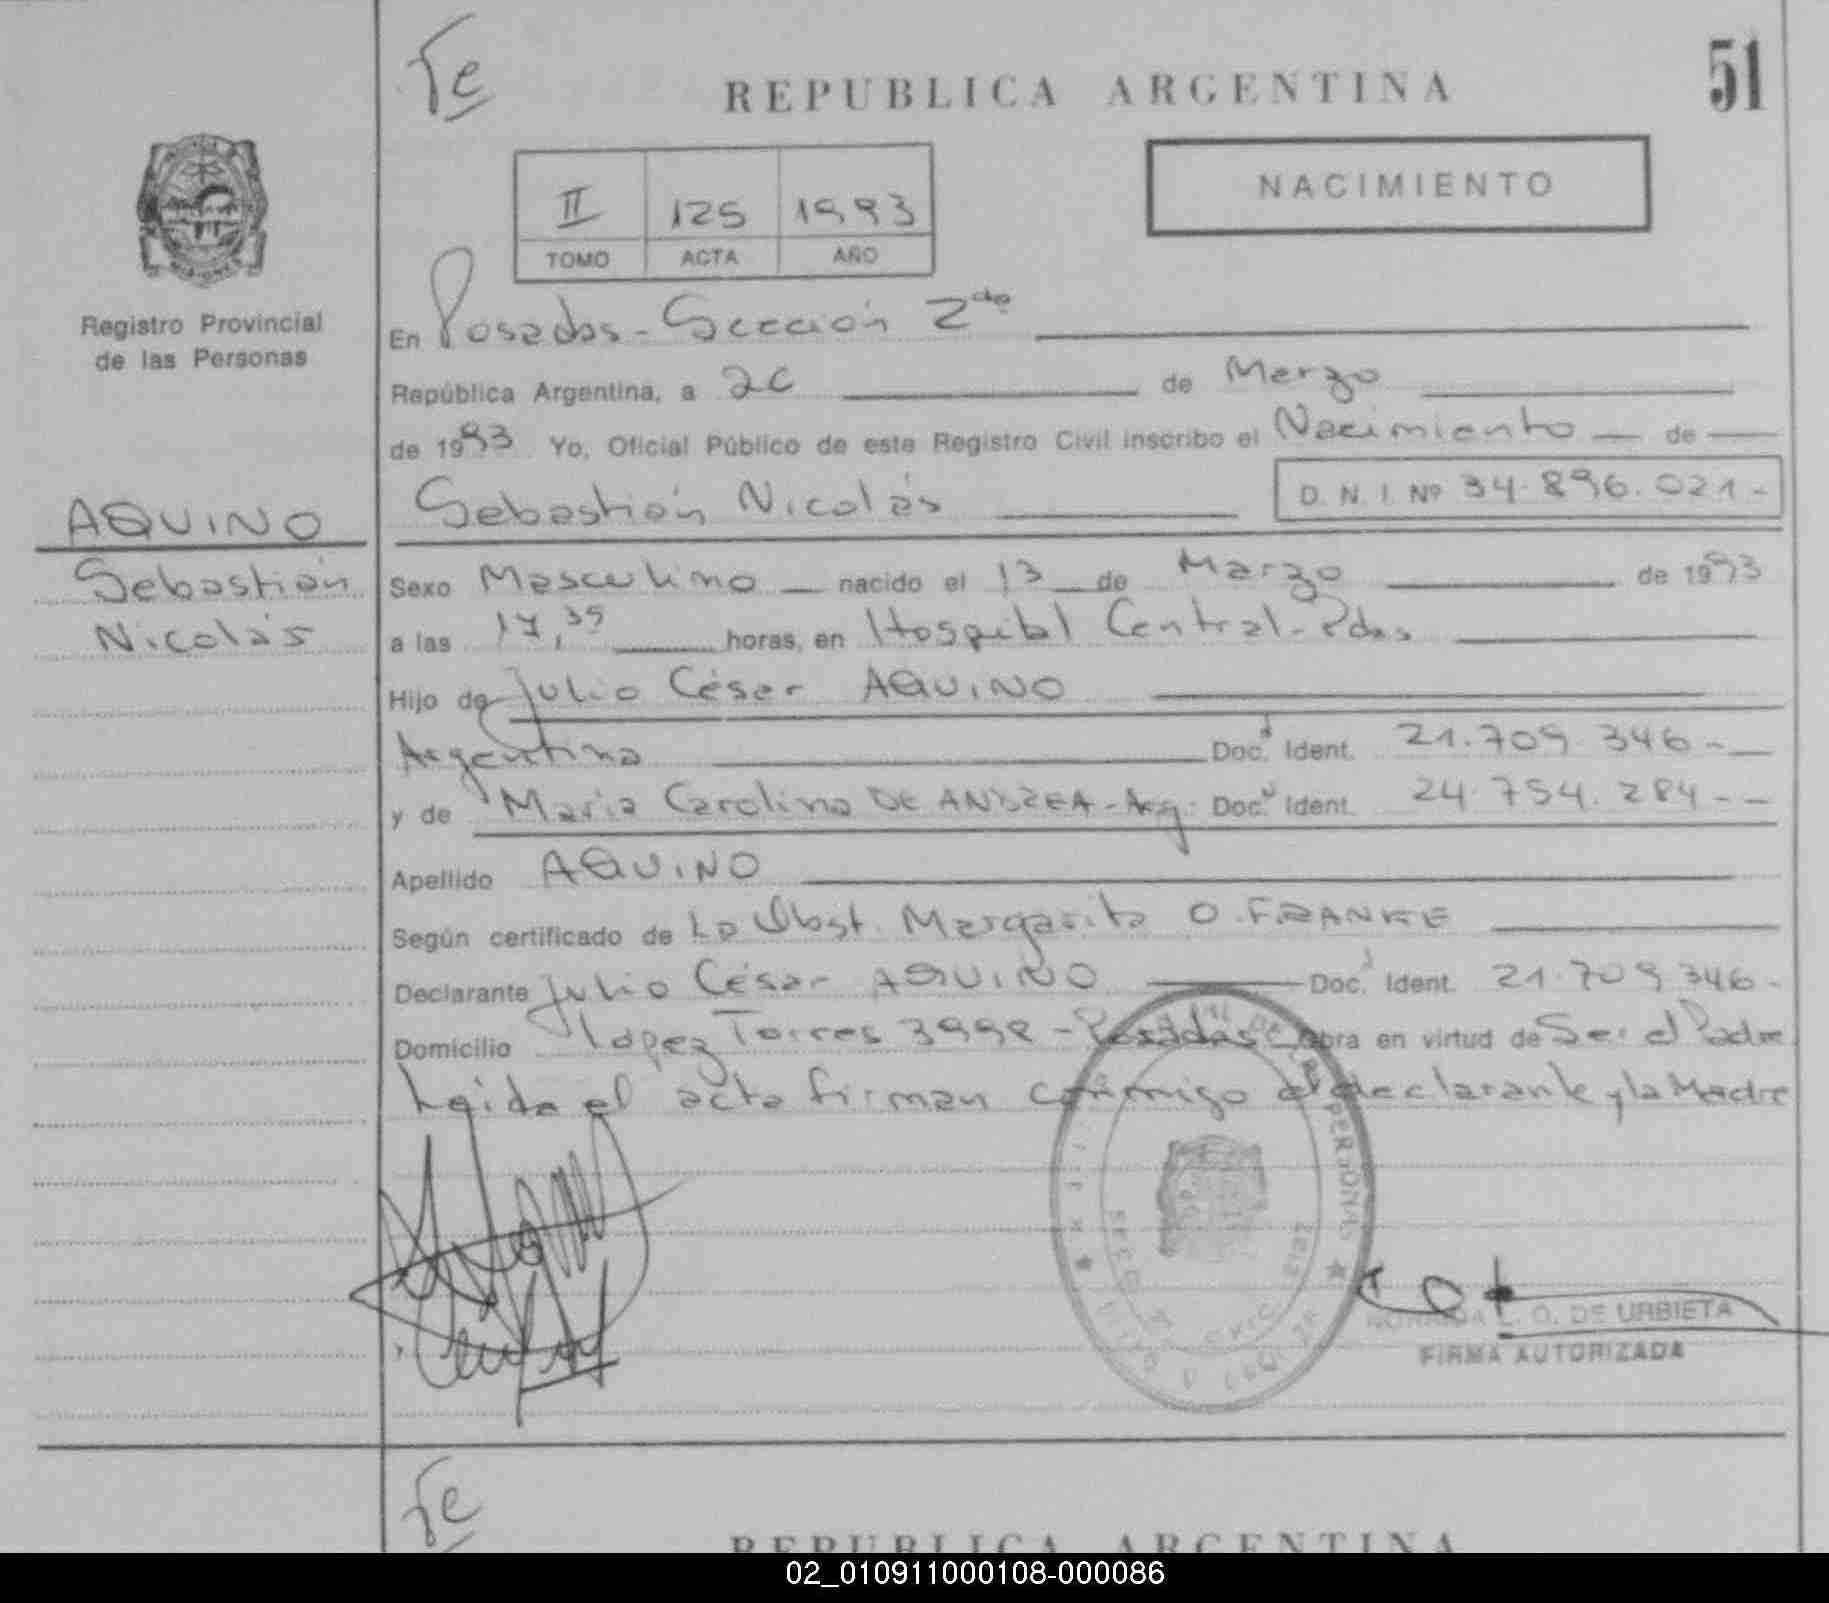 Te
REPUBLICA ARGENTINA
51
II 125 1993
TOMO ACTA AÑO
NACIMIENTO
Registro Provincial
de las Personas
En Posadas - Sección 2da
República Argentina, a 26 de Marzo
de 1993 Yo, Oficial Público de este Registro Civil inscribo el Nacimiento de
Sebastián Nicolás D. N. I. Nº 34.896.021 -
AQUINO
Sebastián
Nicolás
Sexo Masculino nacido el 13 de Marzo de 1993
a las 17,35 horas, en Hospital Central - Pdas
Hijo de Julio César AQUINO
Argentina Doc. Ident. 21.709.346 -
y de María Carolina DE ANDREA - Arg. Doc. Ident. 24.754.284 - -
Apellido AQUINO
Según certificado de La Obst. Margarita O. FRANKE
Declarante Julio César AQUINO Doc. Ident. 21.709.346 -
Domicilio López Torres 3998 - Posadas Obra en virtud de Ser el Padre
Leida el acta firman conmigo el declarante y la Madre
L. O. DE URBIETA
FIRMA AUTORIZADA
Te
REPUBLICA ARGENTINA
02_010911000108-000086